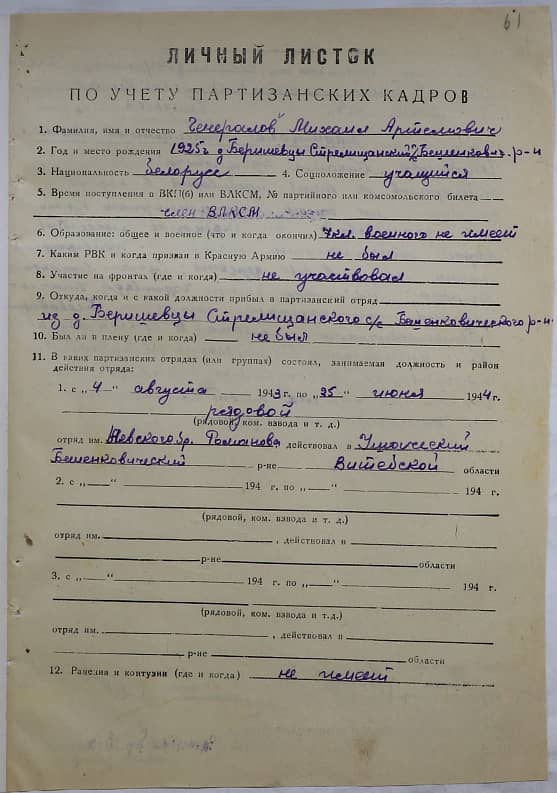 61
ЛИЧНЫЙ ЛИСТОК
ПО УЧЕТУ ПАРТИЗАНСКИХ КАДРОВ
1. Фамилия, имя и отчество Генералов Михаил Артемович
2. Год и место рождения 1925г. д Веришевцы Стрелищанский с/с Бешенкович. р-н
3. Национальность белорусс 4. Соцположение учащийся
5. Время поступления в ВКП(б) или ВЛКСМ, № партийного или комсомольского билета
член ВЛКСМ
6. Образование: общее и военное (что и когда окончил) 7 кл. военного не имеет
7. Каким РВК и когда призван в Красную Армию не был
8. Участие на фронтах (где и когда) не участвовал
9. Откуда, когда и с какой должности прибыл в партизанский отряд
из д. Веришевцы Стрелищанского с/с Бешенковического р-н
10. Был ли в плену (где и когда) не был
11. В каких партизанских отрядах (или группах) состоял, занимаемая должность и район
действия отряда:
1. с „4“ августа 1943 г. по „25“ июня 1944 г.
рядовой
(рядовой, ком. взвода и т. д.)
отряд им. Невского бр. Романова действовал в Ушачский
Бешенковический р-не Витебской области
2. с „—“ 194 г. по „—“ 194 г.
(рядовой, ком. взвода и т. д.)
отряд им. , действовал в
р-не области
3. с „—“ 194 г. по „—“ 194 г.
(рядовой, ком. взвода и т.д.)
отряд им. , действовал в
р-не области
12. Ранения и контузии (где и когда) не имеет